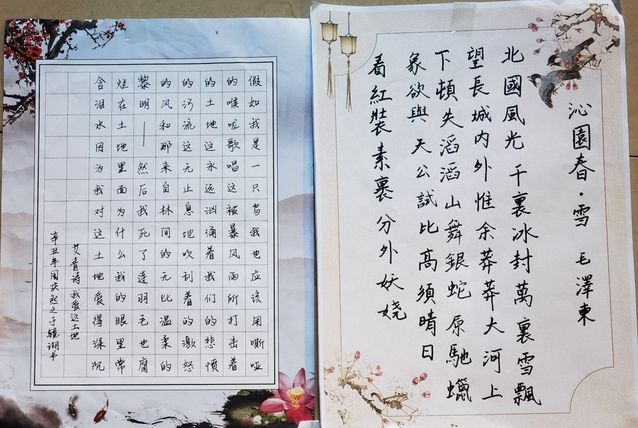 沁園春·雪 毛澤東
北國風光 千裏冰封萬裏雪飄
望長城内外惟余莽莽大河上
下頓失滔滔山舞銀蛇原馳蠟
象欲與天公試比高須晴日
看紅裝素裹分外妖娆
假如我是一只鸟我也应该用嘶哑
的喉咙歌唱这被暴风雨所打击着
的土地这永远汹涌着我们的悲愤
的河流这无止息地吹刮着的激怒
的风和那来自林间的无比温柔的
黎明——然后我死了连羽毛也腐
烂在土地里面为什么我的眼里常
含泪水因为我对这土地爱得深沉
艾青诗我爱这土地
辛丑年国庆然之于镜湖书